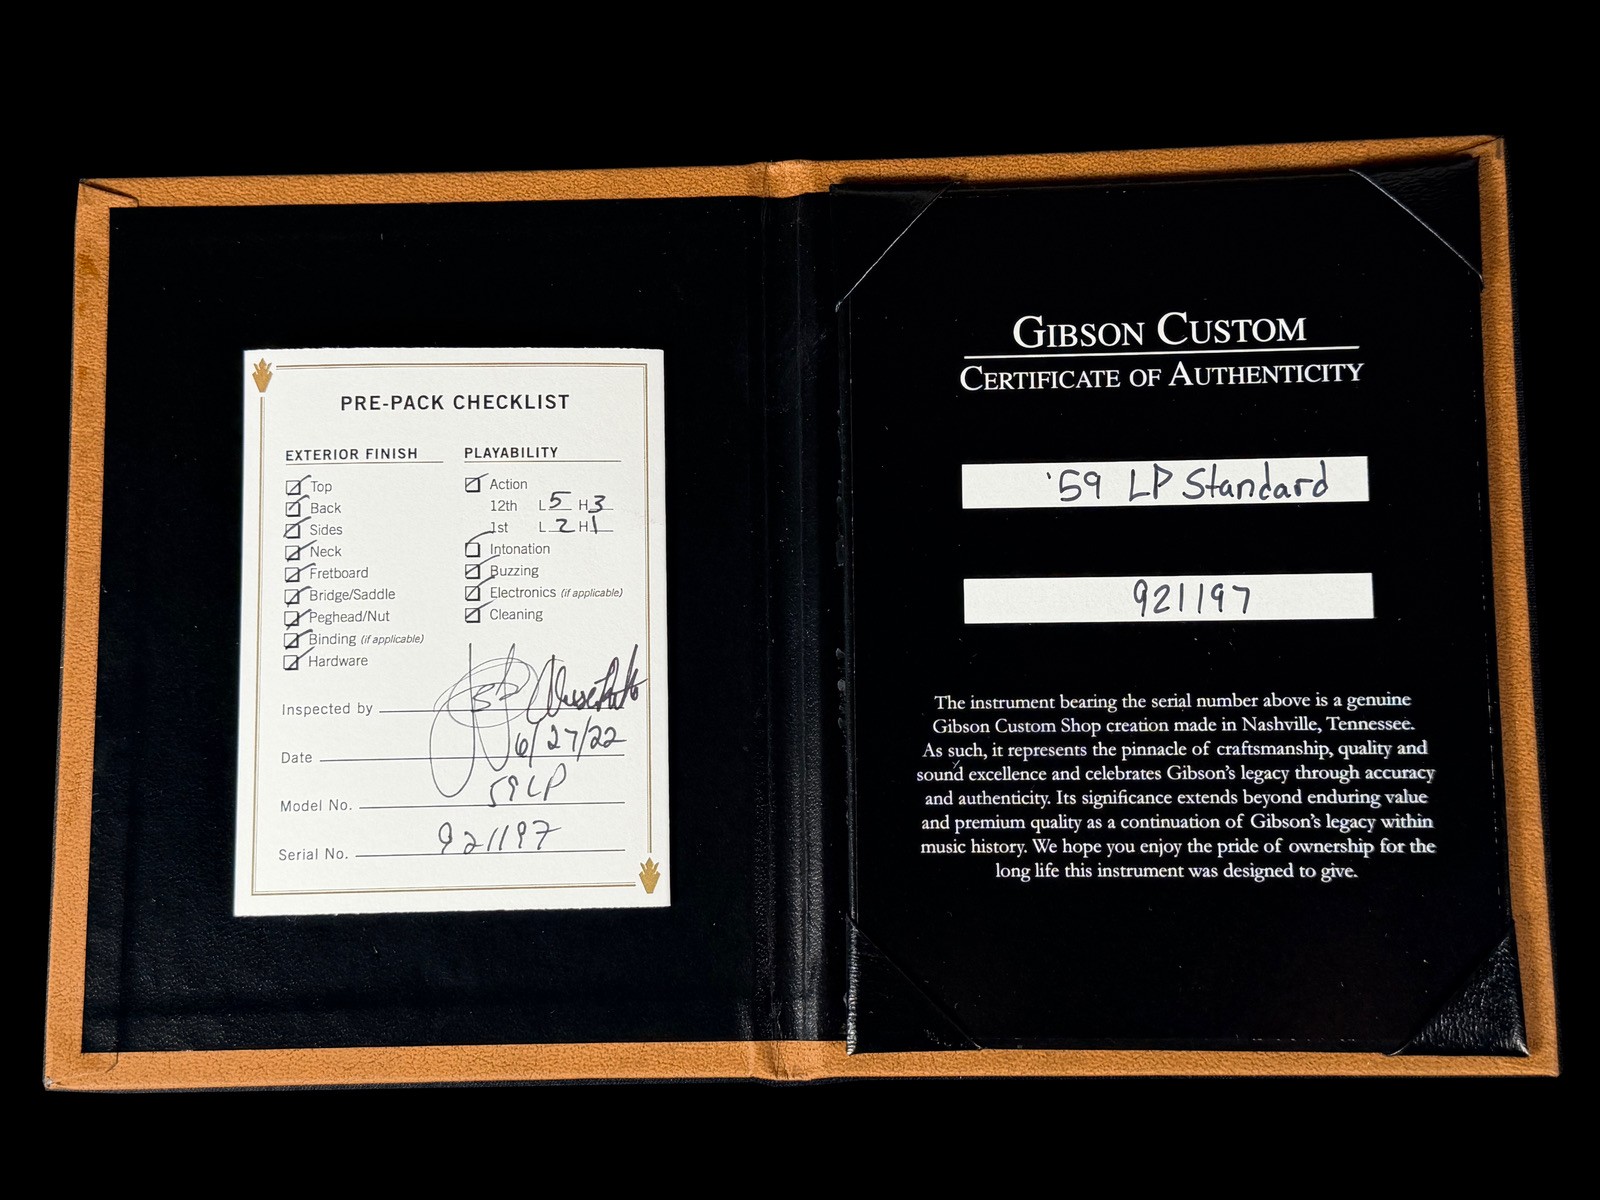 PRE-PACK CHECKLIST
EXTERIOR FINISH
Top
Back
Sides
Neck
Fretboard
Bridge/Saddle
Peghead/Nut
Binding (if applicable)
Hardware
PLAYABILITY
Action
12th L 5 H 3
1st L 2 H 1
Intonation
Buzzing
Electronics (if applicable)
Cleaning
Inspected by
Date 6/27/22
Model No. 59 LP
Serial No. 921197
GIBSON CUSTOM
CERTIFICATE OF AUTHENTICITY
'59 LP Standard
921197
The instrument bearing the serial number above is a genuine
Gibson Custom Shop creation made in Nashville, Tennessee.
As such, it represents the pinnacle of craftsmanship, quality and
sound excellence and celebrates Gibson's legacy through accuracy
and authenticity. Its significance extends beyond enduring value
and premium quality as a continuation of Gibson's legacy within
music history. We hope you enjoy the pride of ownership for the
long life this instrument was designed to give.